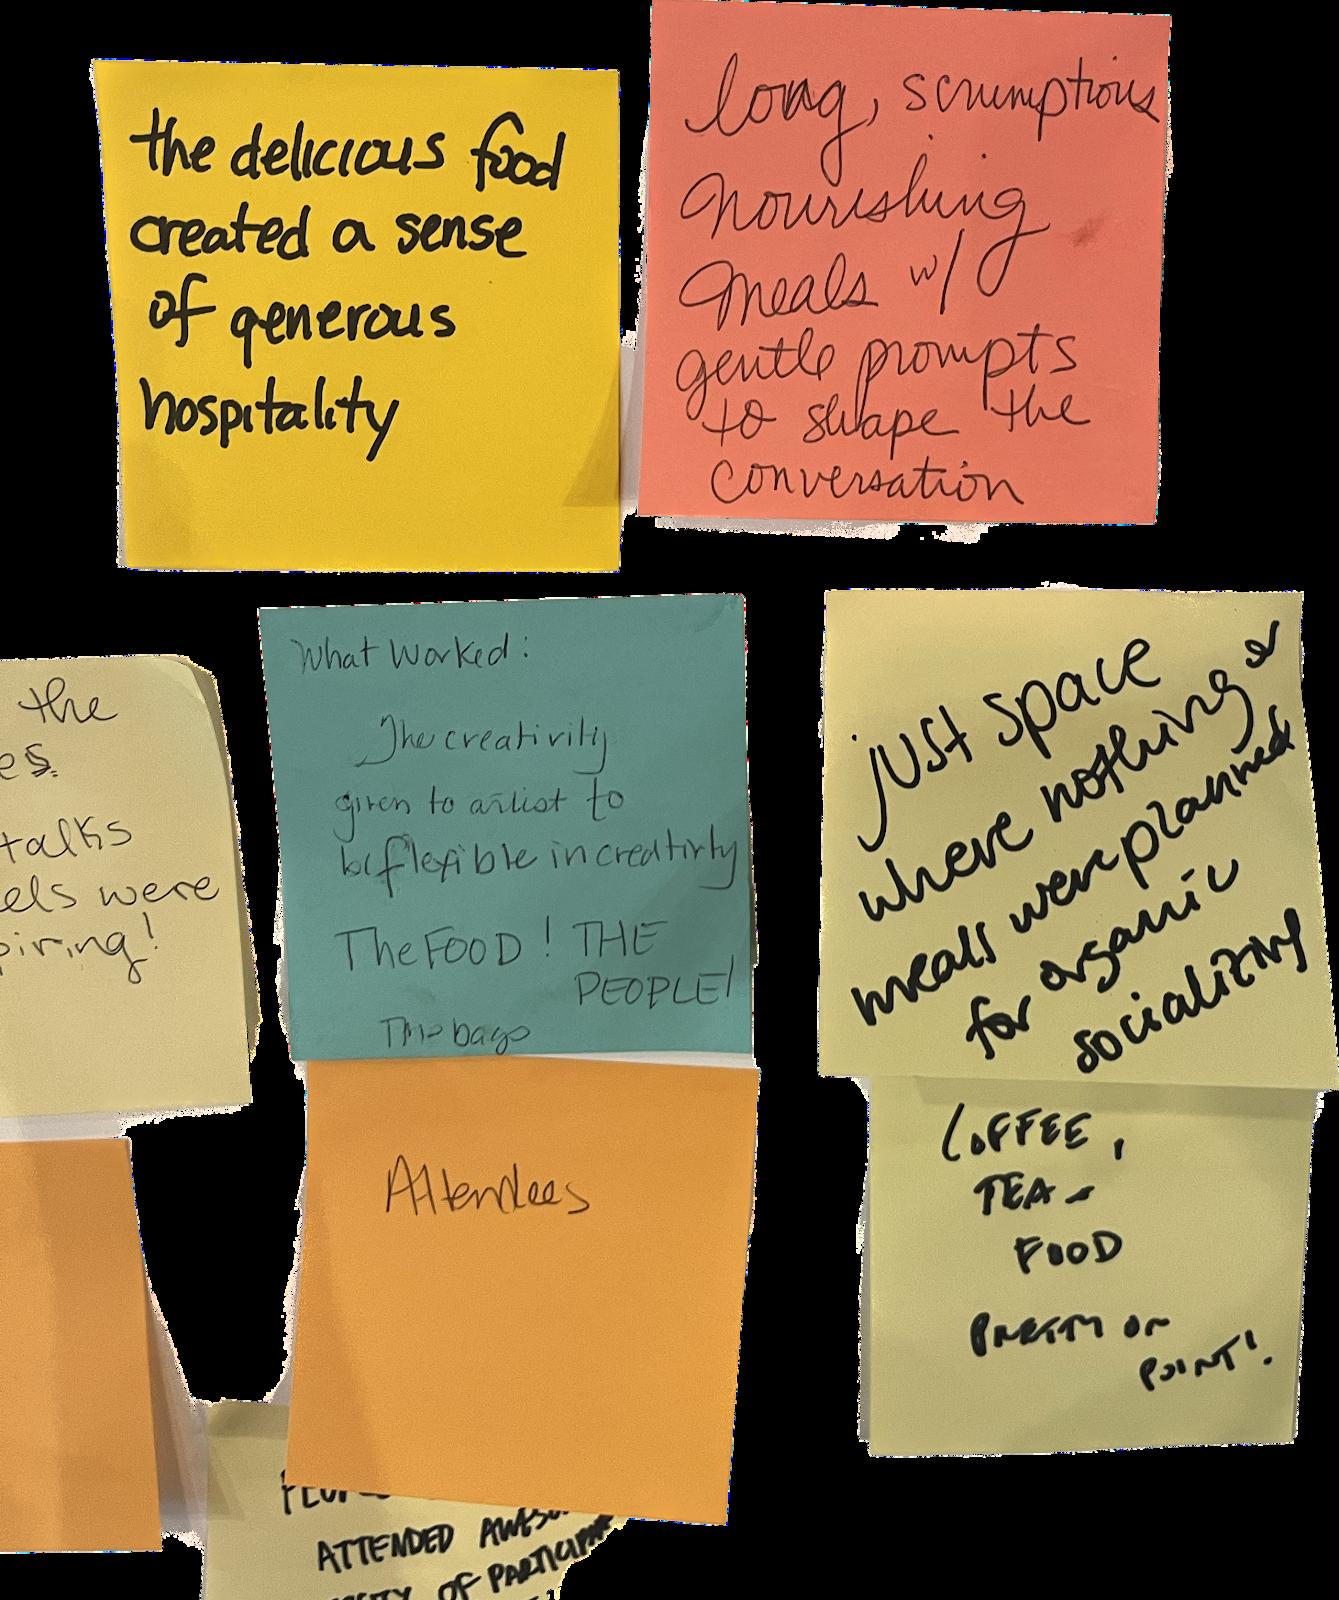 the delicious food
created a sense
of generous
hospitality
long, scrumptious
nourishing
meals w/
gentle prompts
to shape the
conversation
the
es.
talks
els were
piring!
What Worked:
The creativity
given to artist to
be flexible in creativity
The FOOD! THE
PEOPLE!
The bags
just space
where nothing &
meals were planned
for organic
socializing
Attendees
COFFEE,
TEA -
FOOD
PRETTY ON
POINT!
ATTENDED
OF